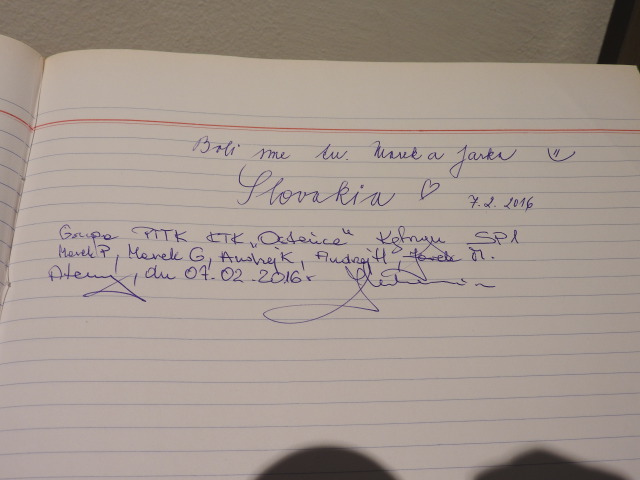 Boli sme tu. Marek a Jarka
Slovakia ♡ 7.2. 2016
Grupa PTTK KTK „ " Kętrzyn SP1
Marek P, Marek G, Andrzej K, Andrzej H, Jarek M.
Ateny, dn 07.02.2016r